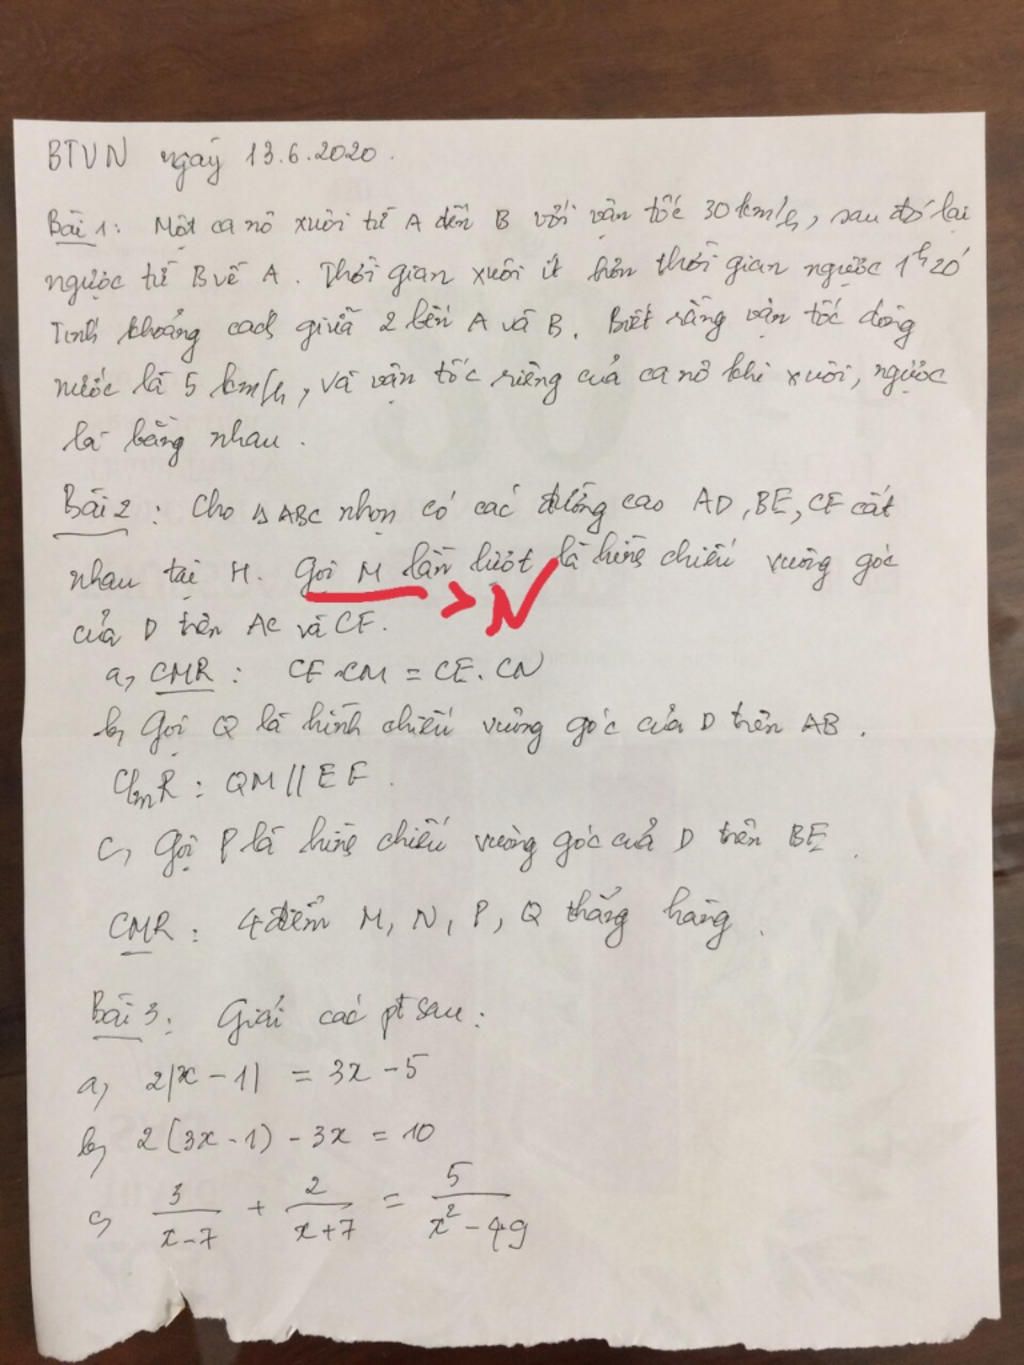 BTVN ngày 13.6.2020.
Bài 1: Một ca nô xuôi từ A đến B với vận tốc 30km/h, sau đó lại
ngược từ B về A. Thời gian xuôi ít hơn thời gian ngược 1h20'
Tính khoảng cách giữa 2 bến A và B. Biết rằng vận tốc dòng
nước là 5 km/h, và vận tốc riêng của ca nô khi xuôi, ngược
là bằng nhau.
Bài 2: Cho Δ ABC nhọn có các đường cao AD, BE, CF cắt
nhau tại H. Gọi M lần lượt là hình chiếu vuông góc
> N
của D trên AC và CF.
a, CMR: CF.CM = CE.CN
b, Gọi Q là hình chiếu vuông góc của D trên AB.
CmR: QM // EF.
c, Gọi P là hình chiếu vuông góc của D trên BE.
CMR: 4 điểm M, N, P, Q thẳng hàng.
Bài 3: Giải các pt sau:
a, 2|x - 1| = 3x - 5
b, 2(3x - 1) - 3x = 10
c, 3/(x-7) + 2/(x+7) = 5/(x² - 49)